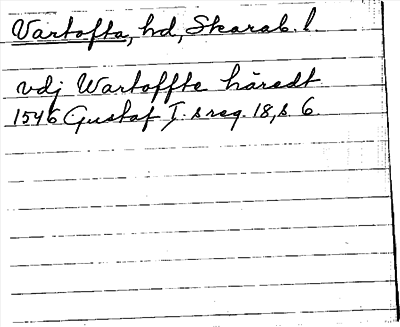 Vartofta, hd, Skarab. l
vdj Wartoffte häredt
1546 Gustaf I:s reg. 18, s. 6